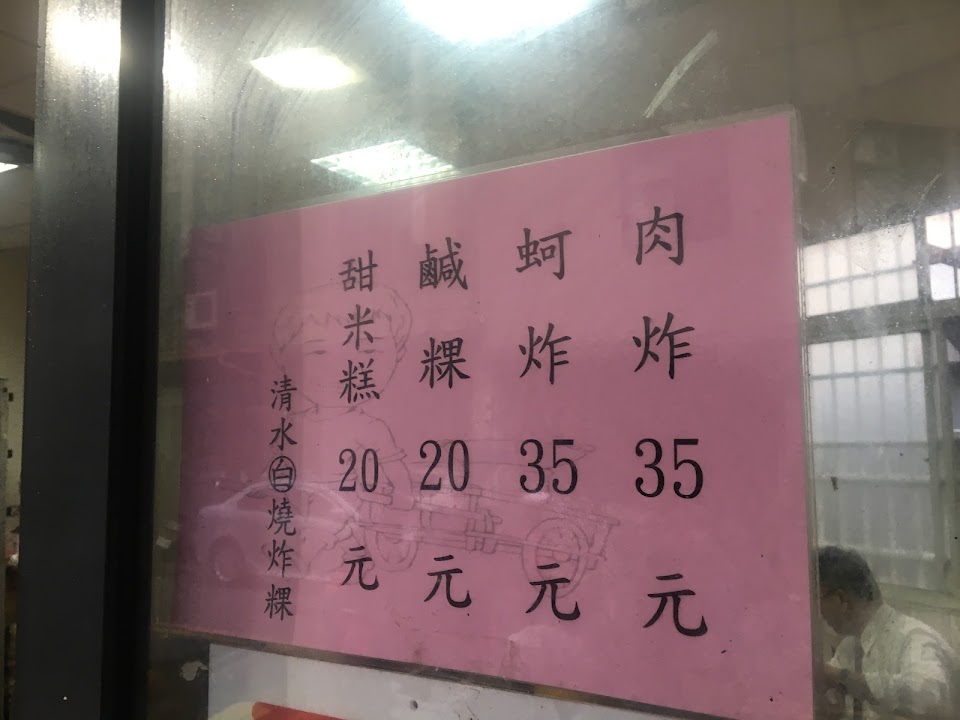 肉炸35元
蚵炸35元
鹹粿20元
甜米糕20元
清水白燒炸粿